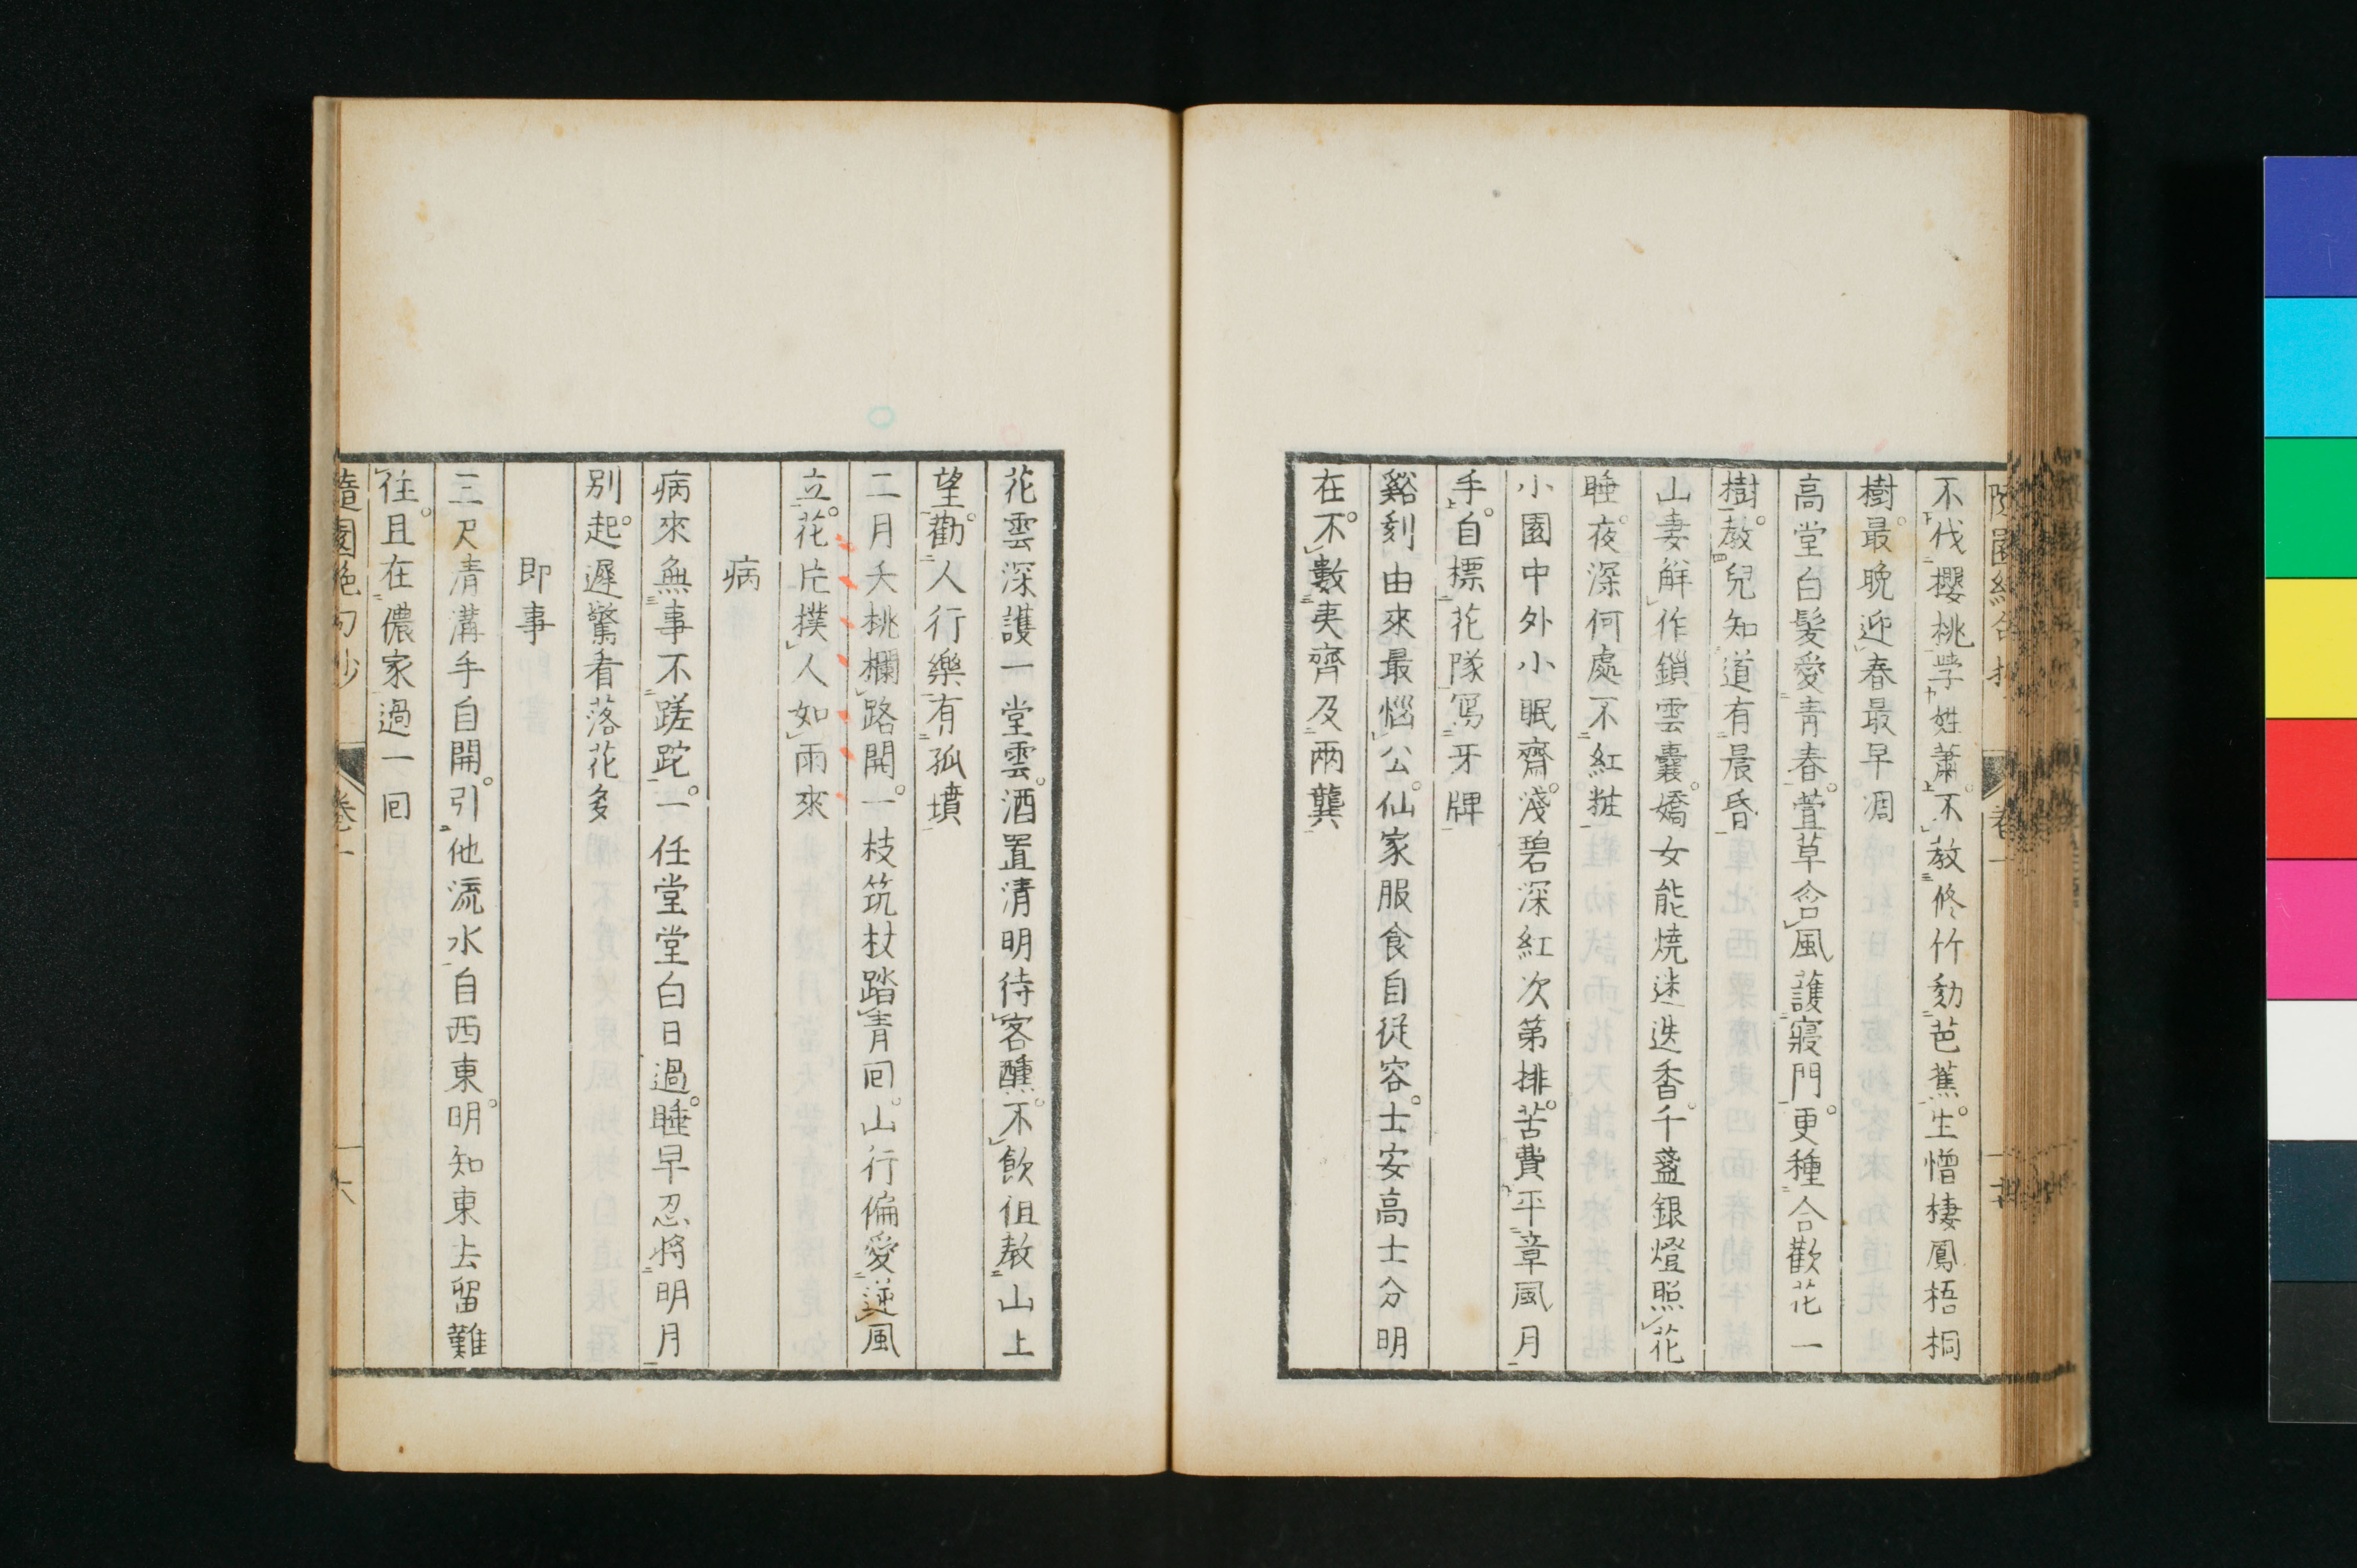 不伐櫻桃學姓蕭。不教修竹勅芭蕉。生憎棲鳳梧桐
樹。最晩迎春最早凋
高堂白髮愛青春。萱草含風護寢門。更種合歡花一
樹。教兒知道有晨昏
山妻解作鎖雲囊。嬌女能燒迷迭香。千盞銀燈照花
睡。夜深何處不紅粧
小園中外小眠齋。淺碧深紅次第排。苦費平章風月
手。自標花隊寫牙牌
谿刻由來最惱公。仙家服食自從容。士安高士分明
在。不數夷齊及兩龔
花雲深護一堂雲。酒置清明待客醺。不飲但教山上
望。勸人行樂有孤墳
二月夭桃欄路開。一枝筑杖踏青回。山行偏愛逆風
立。花片撲人如雨來
病
病來無事不蹉跎。一任堂堂白日過。睡早忍將明月
別。起遲驚看落花多
即事
三尺清溝手自開。引他流水自西東。明知東去留難
住。且在儂家過一回
隨園絶句抄 卷一 六